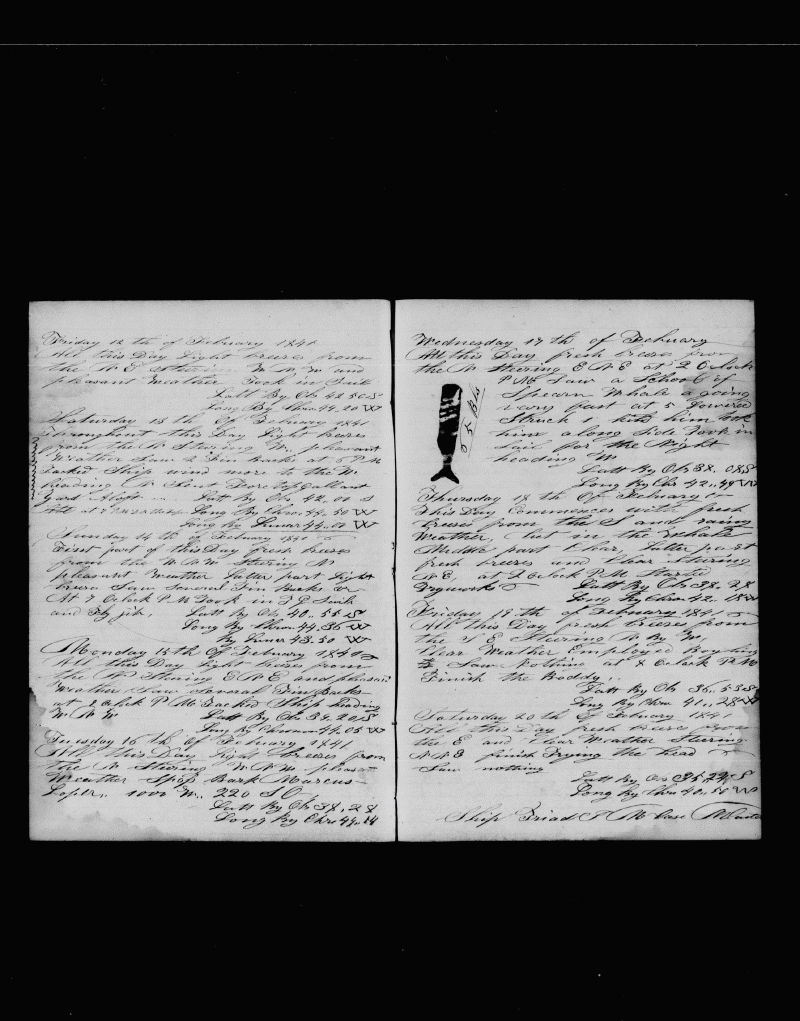 Friday 12 th of February 1841
All this Day Light breezes from
the N E Steering W N W and
pleasant Weather Took in Sail
Latt By Obs 42 50 S
Long By Chro 44.20 W
Saturday 13 th Of February 1841
Throughout this Day Light breezes
from the N Steering W.. pleasant
Weather Saw 2 Fin Backs at 6 P M
tacked Ship wind more to the W
heading N Sent Foretopgallant
yard Aloft Latt By Obs 42,00 S
Long By Chro, 44,50 W
Long by Lunar 44,00 W
Sunday 14 th of February 1841
First part of this Day fresh breezes
from the W N W Stering N
pleasant Weather Latter part Light
breeze Saw Several Fin Backs
At 7 Oclock P M Took in T G Sails
and Fly jib, Latt By Obs 40,,55 S
Long By Chron 44.36 W
By Luner 43.50 W
Monday 15 th Of February 1841
All this Day Light breezes from
the N Stering E N E and pleasant
Weather Saw Several Fin Backs
at Oclock P M Tacked Ship heading
W N W Latt By Obs 39.20 S
Long By Chronom 44,05 W
Tuesday 16 th Of February 1841
All this Day Light Breezes from
the N Stearing W N W pleasant
Weather Spok Bark Marcus
220 S O
Latt By Ob 38,28
Long By Chro 44,,14
Wednesday 17 th of February
All this Day fresh breezes from
the N Stering E N E at 2 Oclock
P M Saw a School of
Spearm Whale a going
very fast at 5 Lowered
Struck 1 kild him took
him along Side Took in
Sail for the Night
heading W
55 Bls
Latt By Ob 38.08 S
Long By Chr 42,,48 W
Thursday 18 th Of February
this Day Commences with fresh
breezes from the S and rainy
Weather, Cut in the Whale
Middle part Clear Latter part
fresh breezes and Clear Stering
N E, at Oclock P M Started
Tryworks Latt By Obs 38,28
Long By Chron 42,18 W
Friday 19 th of February 1841
All this Day fresh breezes from
the S E Steering N By W,
Clear Weather Employed Boyling
Saw Nothing at 8 Oclock P M
Finish the Boddy,
Latt By Ob 36,,53 S
Long By Chro 41,,28 W
Saturday 20 th Of February 1841
All this Day fresh breezes from
the E and Clear Weather Steering
N N E finish Trying the head
Saw nothing
Latt By Obs 35,29 S
Long By Chro 40,58 W
Ship Triad Case Master